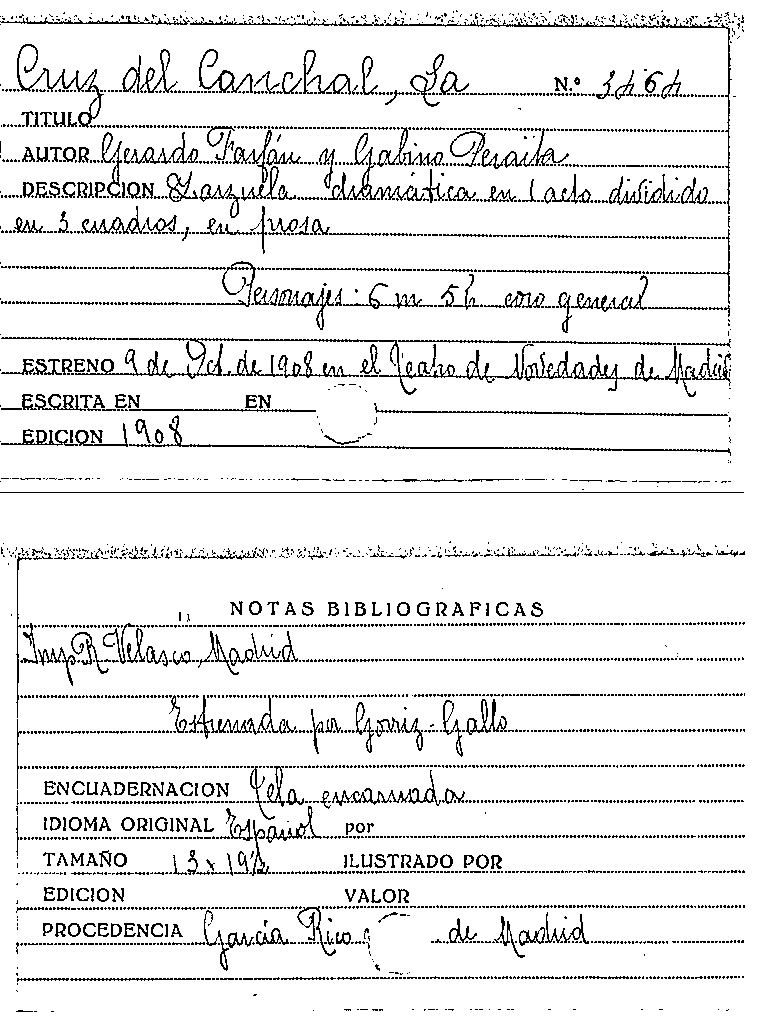 Cruz del Canchal, La N.º 3464
TITULO
AUTOR Gerardo Farfán y Gabino Peraita
DESCRIPCION Zarzuela dramática en 1 acto dividido
en 3 cuadros, en prosa
Personajes: 6 m 5 h coro general
ESTRENO 9 de Oct. de 1908 en el Teatro de Novedades de Madrid
ESCRITA EN EN
EDICION 1908
NOTAS BIBLIOGRAFICAS
Imp R. Velasco, Madrid
Estrenada por Gorriz-Gallo
ENCUADERNACION Tela encarnada
IDIOMA ORIGINAL Español por
TAMAÑO 13 x 19½ ILUSTRADO POR
EDICION VALOR
PROCEDENCIA García Rico de Madrid